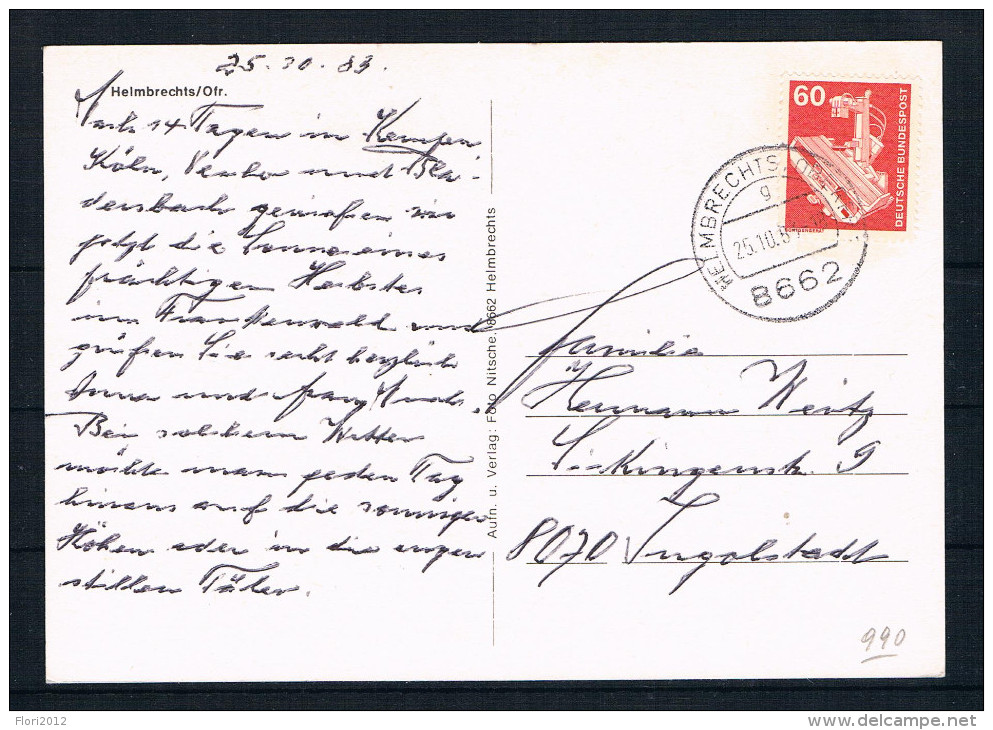 25.10.83.
Helmbrechts/Ofr.
Nach 14 Tagen in Kempen
Köln, Venlo und
genießen wir
jetzt die Sonne eines
prächtigen Herbstes
im Frankenwald und
grüßen Sie recht herzlich
Anna und Franz
Bei solchem Wetter
möchte man jeden Tag
hinaus auf die sonnigen
Höhen oder in die engen
stillen Täler.
Aufn. u. Verlag: Foto Nitsche, 8662 Helmbrechts
60
DEUTSCHE BUNDESPOST
HELMBRECHTS, OBERFR
g
25.10.8
8662
Familie
Hermann Weitz
Sickingenstr. 9
8070 Ingolstadt
990
Flori2012
delcampe.net